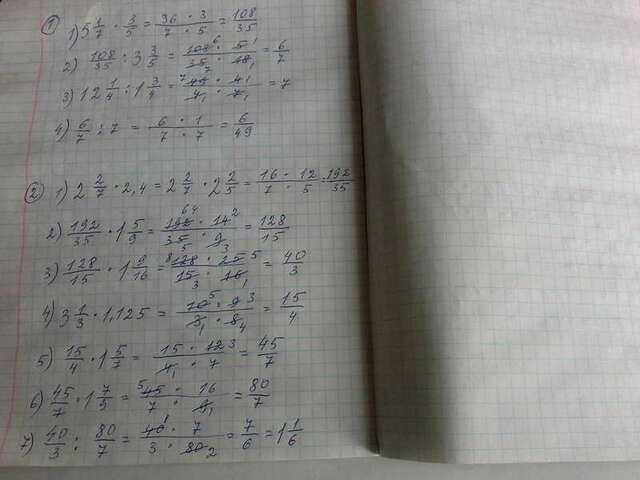 ① 1) 5 1/7 · 3/5 = (36 · 3)/(7 · 5) = 108/35
2) 108/35 : 3 3/5 = (108 6 · 5 1)/(35 7 · 18 1) = 6/7
3) 12 1/4 : 1 3/4 = (7 49 · 4 1)/(4 1 · 7 1) = 7
4) 6/7 : 7 = (6 · 1)/(7 · 7) = 6/49
② 1) 2 2/7 · 2,4 = 2 2/7 · 2 2/5 = (16 · 12)/(7 · 5) = 192/35
2) 192/35 · 1 5/9 = (192 64 · 14 2)/(35 5 · 9 3) = 128/15
3) 128/15 · 1 9/16 = (8 128 · 25 5)/(15 3 · 16 1) = 40/3
4) 3 1/3 · 1,125 = (10 5 · 9 3)/(3 1 · 8 4) = 15/4
5) 15/4 · 1 5/7 = (15 · 12 3)/(4 1 · 7) = 45/7
6) 45/7 · 1 7/9 = (5 45 · 16)/(7 · 9 1) = 80/7
7) 40/3 : 80/7 = (40 1 · 7)/(3 · 80 2) = 7/6 = 1 1/6